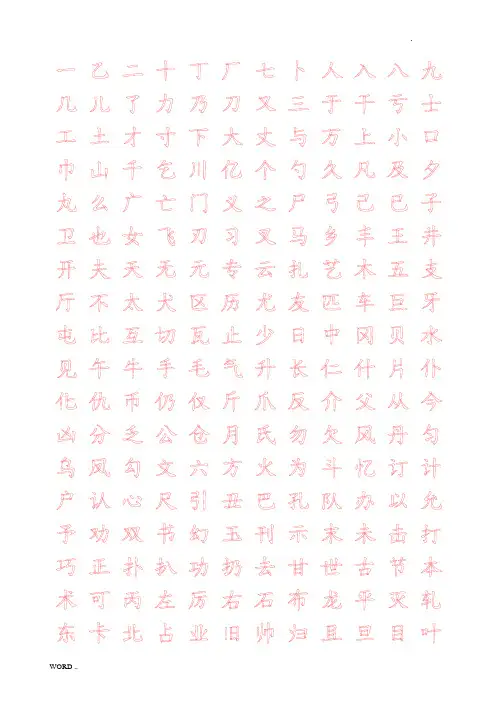 一 乙 二 十 丁 厂 七 卜 人 入 八 九
几 儿 了 力 乃 刀 又 三 于 干 亏 士
工 土 才 寸 下 大 丈 与 万 上 小 口
巾 山 千 乞 川 亿 个 勺 久 凡 及 夕
丸 么 广 亡 门 义 之 尸 弓 己 已 子
卫 也 女 飞 刃 习 叉 马 乡 丰 王 井
开 夫 天 无 元 专 云 扎 艺 木 五 支
厅 不 太 犬 区 历 尤 友 匹 车 巨 牙
屯 比 互 切 瓦 止 少 日 中 冈 贝 水
见 午 牛 手 毛 气 升 长 仁 什 片 仆
化 仇 币 仍 仅 斤 爪 反 介 父 从 今
凶 分 乏 公 仓 月 氏 勿 欠 风 丹 匀
乌 凤 勾 文 六 方 火 为 斗 忆 订 计
户 认 心 尺 引 丑 巴 孔 队 办 以 允
予 劝 双 书 幻 玉 刊 示 末 未 击 打
巧 正 扑 扒 功 扔 去 甘 世 古 节 本
术 可 丙 左 厉 右 石 布 龙 平 灭 轧
东 卡 北 占 业 旧 帅 归 且 旦 目 叶
WORD ..